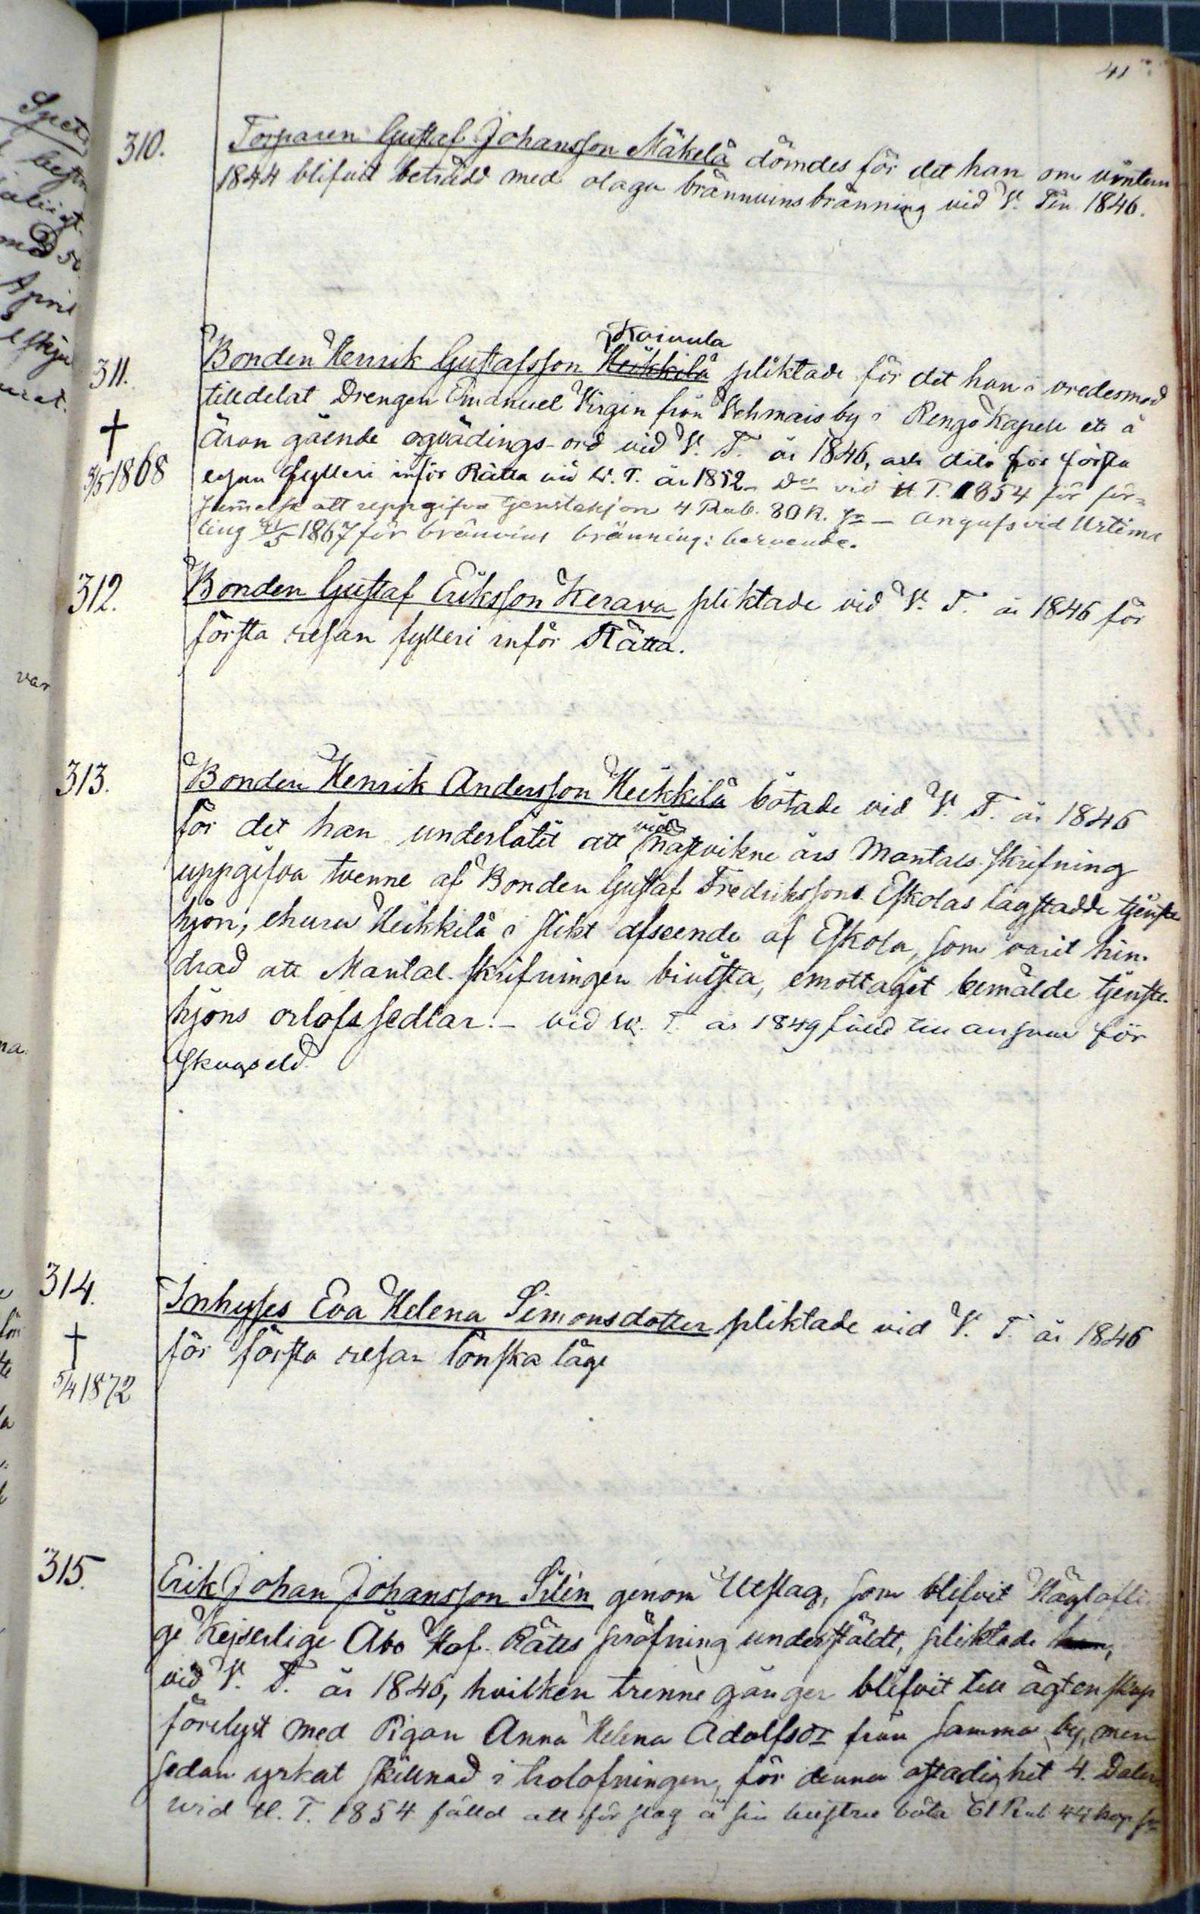 41
310. Torparen Gustaf Johansson Mäkelä dömdes för det han om vintern
1844 blifvit beträdd med olaga brännvinsbränning vid V. Tin 1846.
Koivula
311. Bonden Henrik Gustafsson Heikkilä pliktade för det han i vredesmod
tilldelat Drengen Emanuel Virgin från Vehmais by i Rengo Kapell ett å
äran gående oqvädings-ord vid V. T. år 1846, och dito för första
† 1868
resan fylleri inför Rätta vid V. T. år 1852 - Do vid H. T. 1854 för för-
summelse att uppgifva tjenstehjon 4 Rub. 80 K. Sr -
ting 1867 för bränvins bränning: beroende.
312. Bonden Gustaf Eriksson Kerava pliktade vid V. T. år 1846 för
första resan fylleri inför Rätta.
313. Bonden Henrik Andersson Heikkilä bötade vid V. T. år 1846
för det han underlåtit att vid nästvikne års Mantals skrifning
uppgifva tvenne af Bonden Gustaf Fredrikssons Eskolas lagstadde tjenste
hjon, ehuru Heikkilä i slikt afseende af Eskola, som varit hin-
drad att Mantal-skrifningen bivista, emottagit bemälde tjenste-
hjons orlofssedlar. - vid V. T. år 1849 fälld till ansvar för
skogseld
314. Inhyses Eva Helena Simonsdotter pliktade vid V. T. år 1846
för första resan lönskaläge
† 5/4 1872
315. Erik Johan Johansson Silén genom Utslag, som blifvit Höglofli-
ge Kejserlige Åbo Hof-Rätts pröfning underställdt, pliktade han,
vid V. T. år 1846, hvilken trenne gånger blifvit till ägtenskap
förelyst med Pigan Anna Helena Adolfsdr från samma by, men
sedan yrkat skillnad i trolofningen, för denna ostadighet 4. Daler
vid H. T. 1854 fälld att för slag å sin hustru böta 61 Rub 44 kop Sr